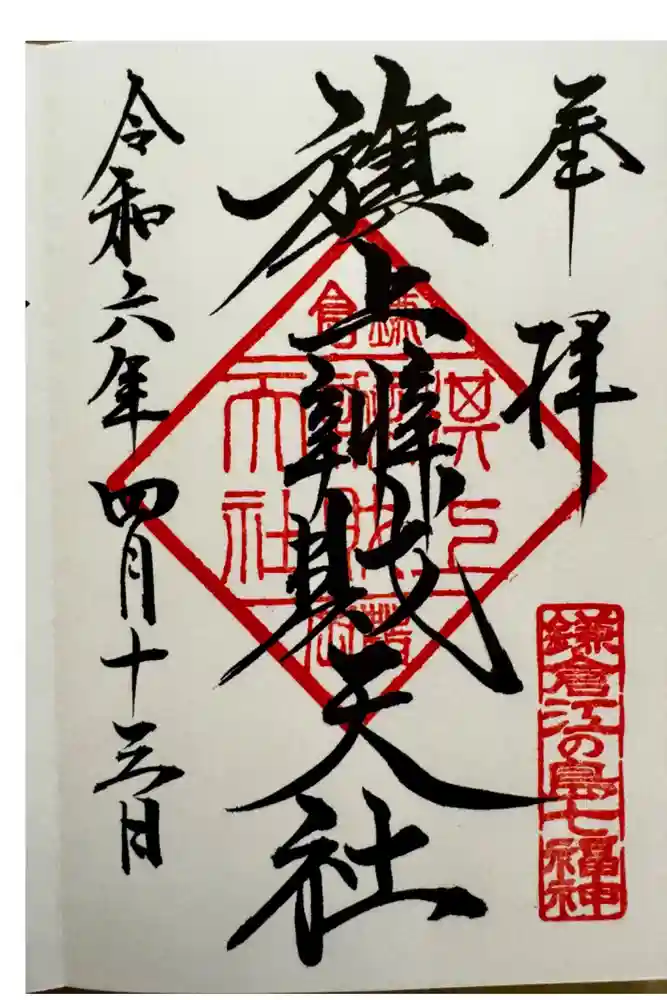 奉拝
旗上辨戝天社
令和六年四月十三日
鎌倉江の島七福神
鎌倉
旗上
辨財
天社